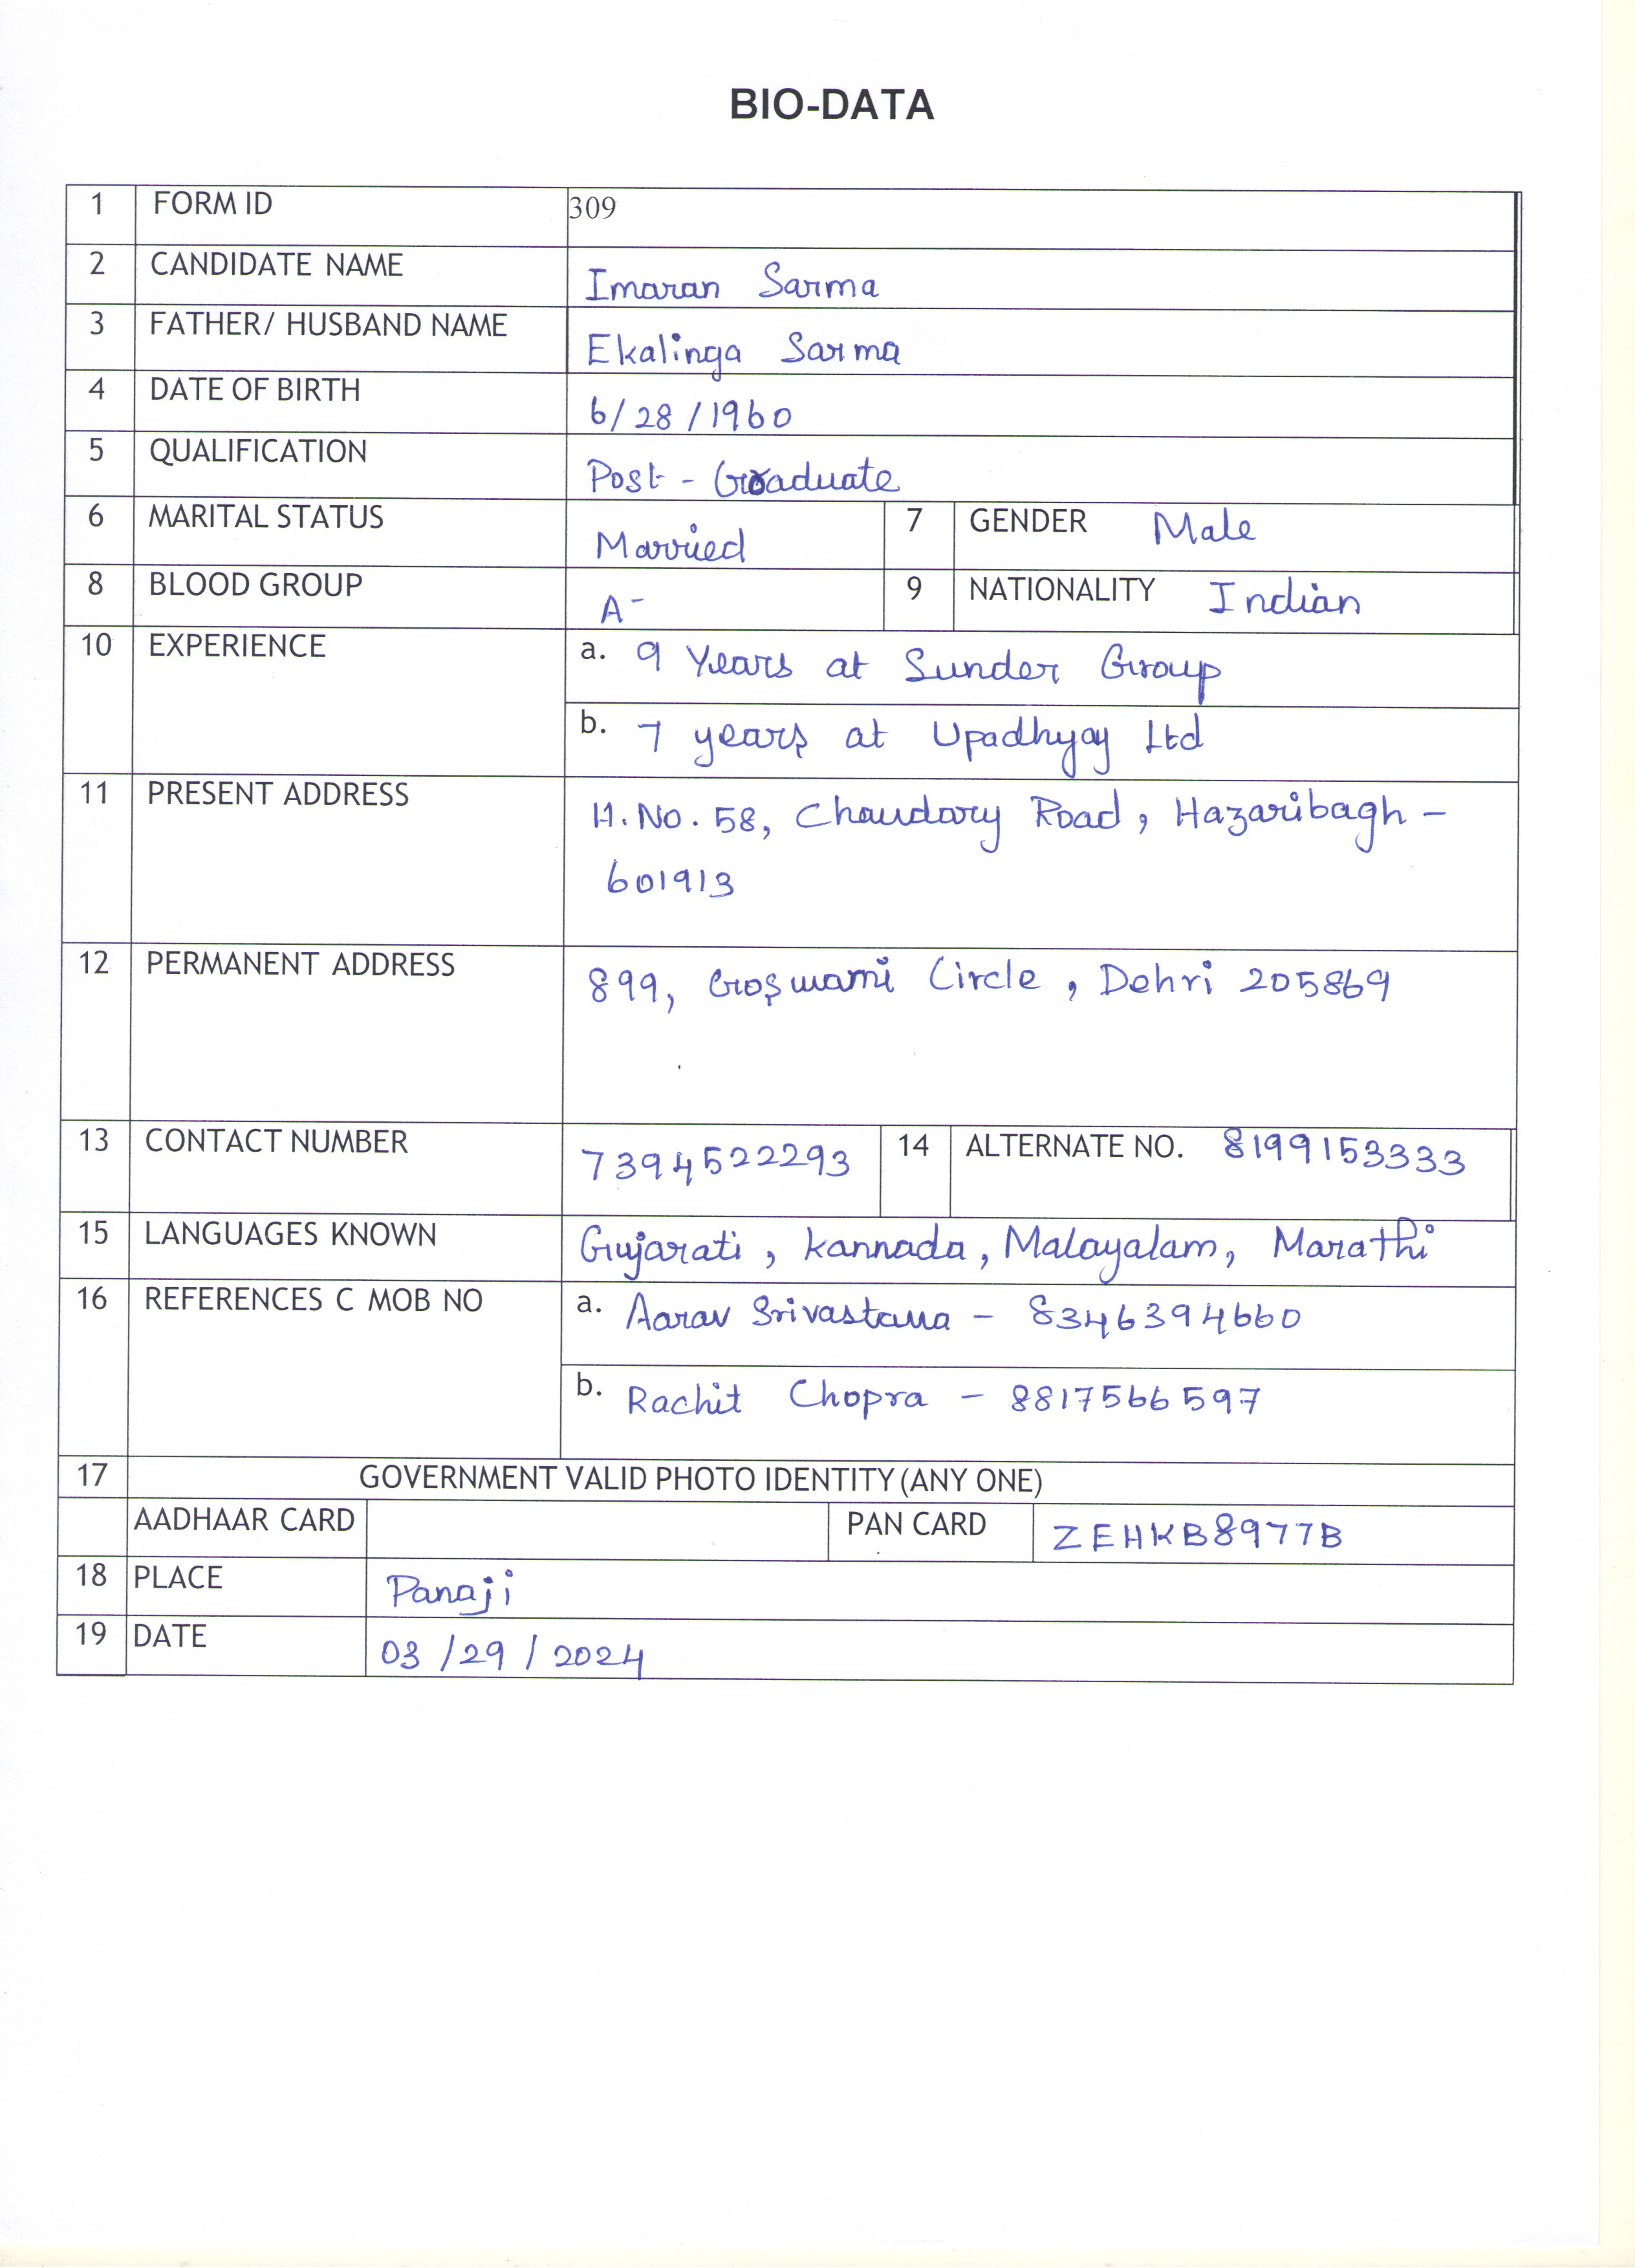 BIO-DATA
1 FORM ID 309
2 CANDIDATE NAME Imaran Sarma
3 FATHER/ HUSBAND NAME Ekalinga Sarma
4 DATE OF BIRTH 6/28/1960
5 QUALIFICATION Post-Graduate
6 MARITAL STATUS Married 7 GENDER Male
8 BLOOD GROUP A- 9 NATIONALITY Indian
10 EXPERIENCE a. 9 Years at Sunder Group
b. 7 years at Upadhyay Ltd
11 PRESENT ADDRESS H.No. 58, Chaudary Road, Hazaribagh -
601913
12 PERMANENT ADDRESS 899, Goswami Circle, Dehri 205869
13 CONTACT NUMBER 7394522293 14 ALTERNATE NO. 8199153333
15 LANGUAGES KNOWN Gujarati, Kannada, Malayalam, Marathi
16 REFERENCES C MOB NO a. Aarav Srivastava - 8346394660
b. Rachit Chopra - 8817566597
17 GOVERNMENT VALID PHOTO IDENTITY (ANY ONE)
AADHAAR CARD PAN CARD ZEHKB8977B
18 PLACE Panaji
19 DATE 03/29/2024